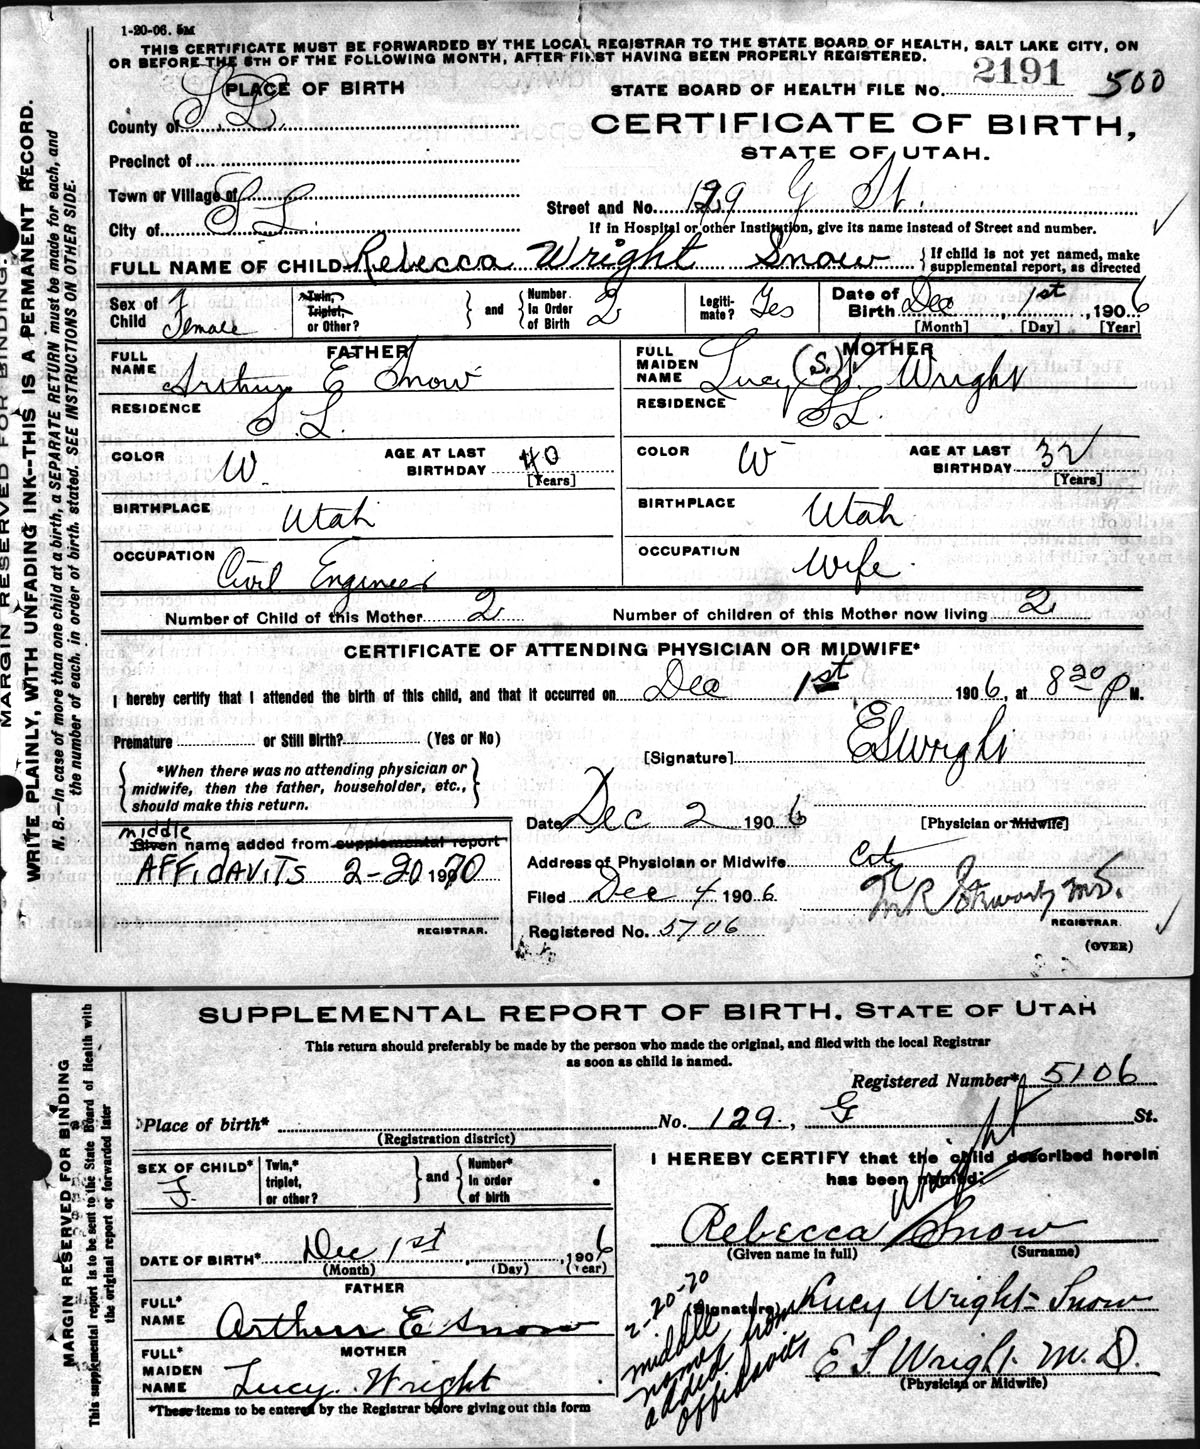 1-20-06. 5M
THIS CERTIFICATE MUST BE FORWARDED BY THE LOCAL REGISTRAR TO THE STATE BOARD OF HEALTH, SALT LAKE CITY, ON
OR BEFORE THE 5TH OF THE FOLLOWING MONTH, AFTER FIRST HAVING BEEN PROPERLY REGISTERED.
PLACE OF BIRTH
STATE BOARD OF HEALTH FILE No. 2191 500
County of S L
CERTIFICATE OF BIRTH,
STATE OF UTAH.
Precinct of
Town or Village of
Street and No. 129 G St.
City of S L.
If in Hospital or other Institution, give its name instead of Street and number.
FULL NAME OF CHILD Rebecca Wright Snow { If child is not yet named, make supplemental report, as directed
Sex of Child Female
Twin, Triplet, or Other? } and { Number in Order of Birth 2
Legiti-mate? Yes
Date of Birth Dec 1st, 1906
[Month] [Day] [Year]
FATHER
FULL NAME Arthur E Snow
MOTHER
FULL MAIDEN NAME Lucy (S.) Wright
RESIDENCE S. L.
RESIDENCE S L.
COLOR W. AGE AT LAST BIRTHDAY 40 [Years]
COLOR W AGE AT LAST BIRTHDAY 32 [Years]
BIRTHPLACE Utah
BIRTHPLACE Utah
OCCUPATION Civil Engineer
OCCUPATION Wife.
Number of Child of this Mother 2 Number of children of this Mother now living 2
CERTIFICATE OF ATTENDING PHYSICIAN OR MIDWIFE*
I hereby certify that I attended the birth of this child, and that it occurred on Dec 1st 1906, at 8 20 P M.
Premature or Still Birth? (Yes or No)
[Signature] E S Wright
{ *When there was no attending physician or midwife, then the father, householder, etc., should make this return. }
Date Dec 2 1906 [Physician or Midwife]
middle
Given name added from supplemental report
AFFIDAVITS 2-20 1970
REGISTRAR.
Address of Physician or Midwife City
Filed Dec 4 1906
M.D.
REGISTRAR.
Registered No. 5706
(OVER)
MARGIN RESERVED FOR BINDING.
WRITE PLAINLY, WITH UNFADING INK--THIS IS A PERMANENT RECORD.
N. B.--In case of more than one child at a birth, a SEPARATE RETURN must be made for each, and
the number of each, in order of birth, stated. SEE INSTRUCTIONS ON OTHER SIDE.
SUPPLEMENTAL REPORT OF BIRTH. STATE OF UTAH
This return should preferably be made by the person who made the original, and filed with the local Registrar
as soon as child is named.
Registered Number* 5106
Place of birth* No. 129, G St.
(Registration district)
SEX OF CHILD* F.
Twin,* triplet, or other? } and { Number* in order of birth
I HEREBY CERTIFY that the child described herein
has been named:
Wright
Rebecca Snow
(Given name in full) (Surname)
DATE OF BIRTH* Dec 1st, 1906
(Month) (Day) (Year)
FATHER
FULL* NAME Arthur E Snow
(Signature) Lucy Wright Snow
MOTHER
FULL* MAIDEN NAME Lucy Wright
E S Wright M.D.
(Physician or Midwife)
2-20-70
middle
name
added from
affidavits
*These items to be entered by the Registrar before giving out this form
MARGIN RESERVED FOR BINDING
This supplemental report is to be sent to the State Board of Health with
the original report or forwarded later